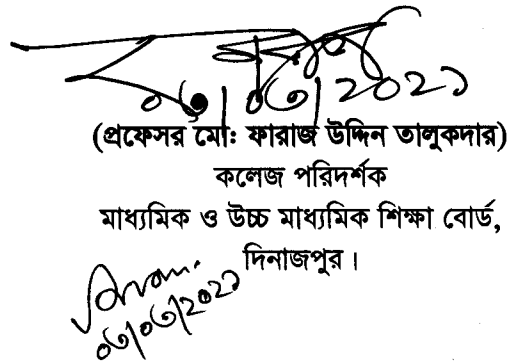 ০৩/০৩/২০২১
(প্রফেসর মো: ফারাজ উদ্দিন তালুকদার)
কলেজ পরিদর্শক
মাধ্যমিক ও উচ্চ মাধ্যমিক শিক্ষা বোর্ড,
দিনাজপুর।
০৩/০৩/২০২১